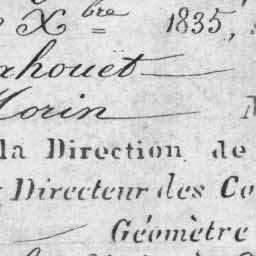 X bre 1835,
khouet
Morin
la Direction de
Directeur des Co
Géomètre